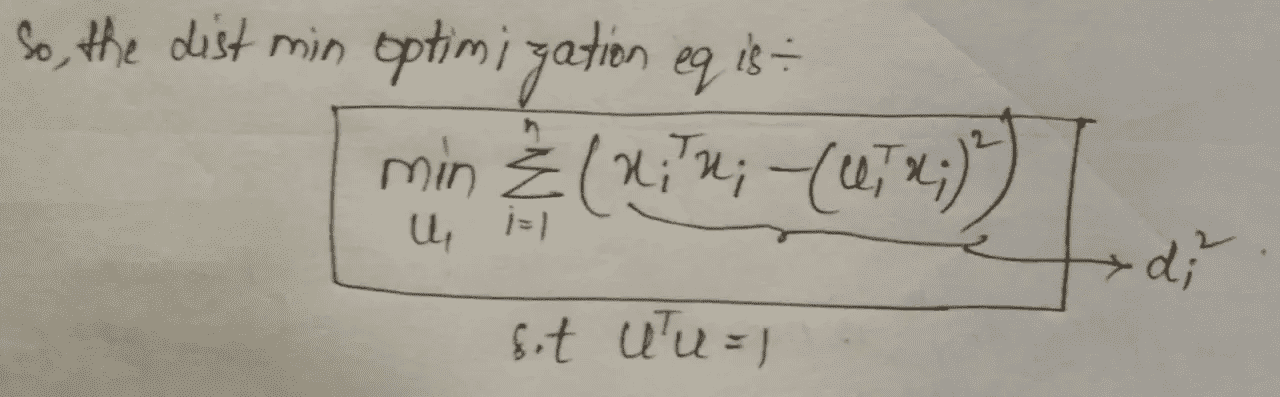 So, the dist min optimization eq is÷
min_{u₁} Σ_{i=1}^{n} (xᵢᵀxᵢ − (u₁ᵀxᵢ)²) → dᵢ²
s.t uᵀu = 1